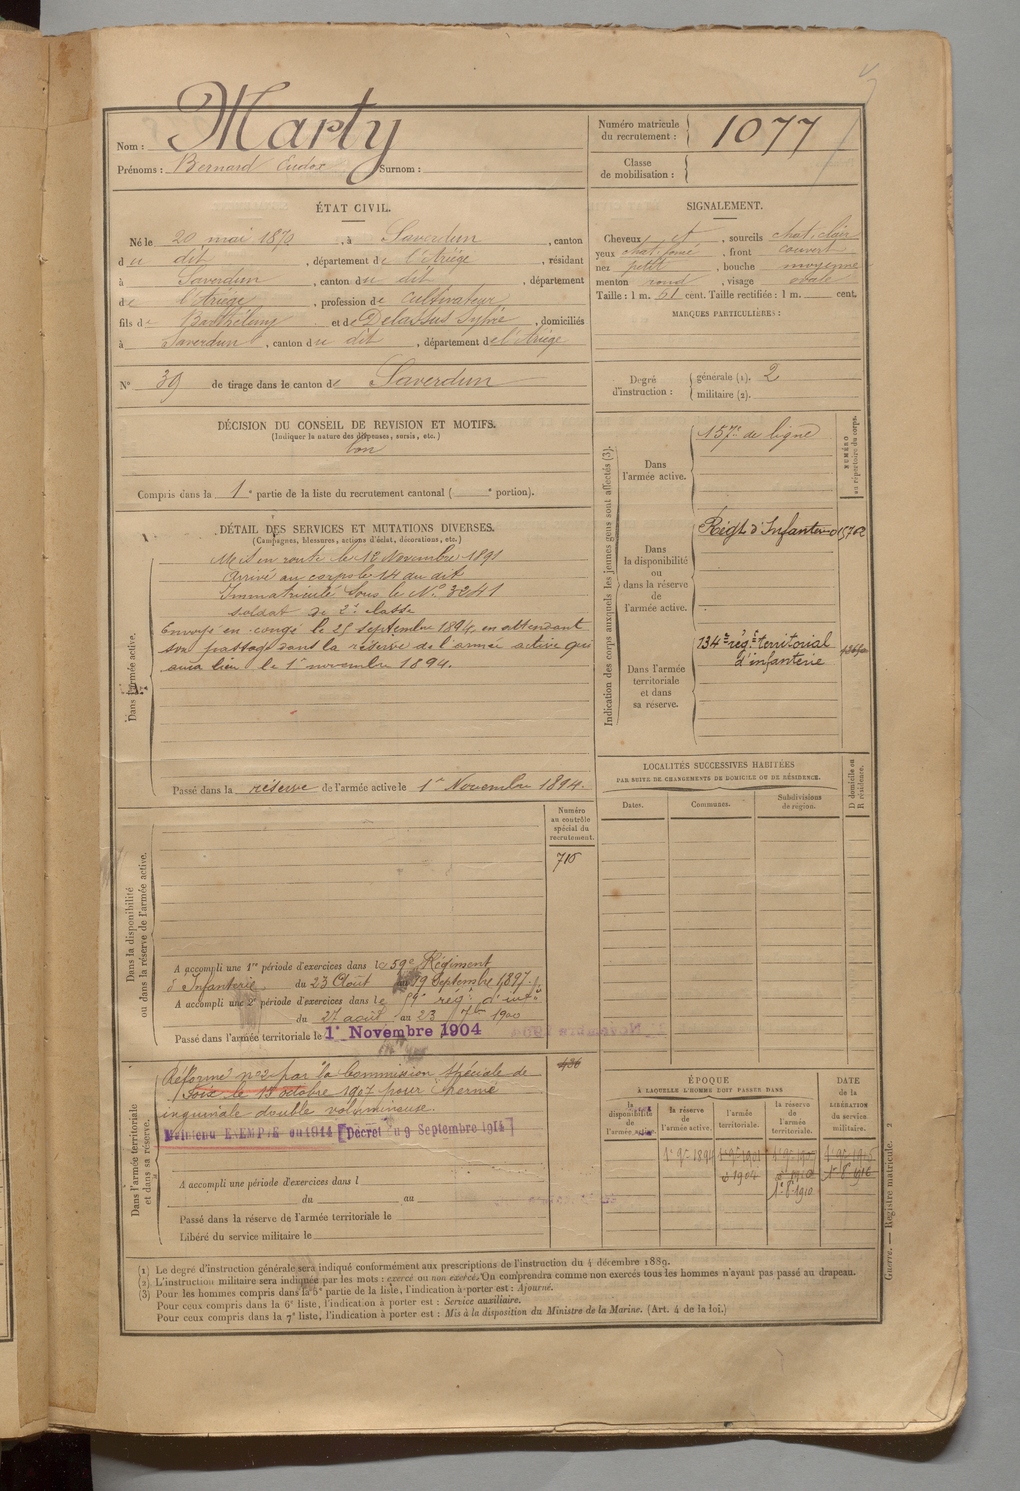 Nom : Marty
Prénoms : Bernard Eudox Surnom :
Numéro matricule du recrutement : 1077
Classe de mobilisation :
ÉTAT CIVIL.
Né le 20 mai 1870, à Saverdun, canton
du dit, département de l'Ariège, résidant
à Saverdun, canton du dit, département
de l'Ariège, profession de cultivateur
fils de Barthélemy et de Delassus Sylvie, domiciliés
à Saverdun, canton du dit, département de l'Ariège
N° 39 de tirage dans le canton de Saverdun
SIGNALEMENT.
Cheveux et, sourcils chat. clair
yeux chat. foncé, front couvert
nez petit, bouche moyenne
menton rond, visage ovale
Taille : 1 m. 61 cent. Taille rectifiée : 1 m. cent.
MARQUES PARTICULIÈRES :
Degré d'instruction : générale (1). 2
militaire (2).
DÉCISION DU CONSEIL DE REVISION ET MOTIFS.
(Indiquer la nature des dispenses, sursis, etc.)
bon
Compris dans la 1e partie de la liste du recrutement cantonal ( e portion).
DÉTAIL DES SERVICES ET MUTATIONS DIVERSES.
(Campagnes, blessures, actions d'éclat, décorations, etc.)
Dans l'armée active.
Mis en route le 12 Novembre 1891
Arrivé au corps le 14 du dit
Immatriculé sous le N° 3241
soldat de 2e classe
Envoyé en congé le 25 septembre 1894, en attendant
son passage dans la réserve de l'armée active qui
aura lieu le 1er novembre 1894.
Passé dans la réserve de l'armée active le 1er Novembre 1894.
Indication des corps auxquels les jeunes gens sont affectés (3).
NUMÉRO au répertoire du corps.
Dans l'armée active.
157e de ligne
Dans la disponibilité ou dans la réserve de l'armée active.
Régt d'Infanterie
Dans l'armée territoriale et dans sa réserve.
134e rég.t territorial
d'infanterie
LOCALITÉS SUCCESSIVES HABITÉES
PAR SUITE DE CHANGEMENTS DE DOMICILE OU DE RÉSIDENCE.
Dates. Communes. Subdivisions de région.
D domicile ou R résidence.
Dans la disponibilité ou dans la réserve de l'armée active.
Numéro au contrôle spécial du recrutement.
715
A accompli une 1re période d'exercices dans le 59e Régiment
d'Infanterie du 23 Août au 19 Septembre 1897.
A accompli une 2e période d'exercices dans le 59e rég. d'inf.ie
du 27 août au 23 7bre 1900
Passé dans l'armée territoriale le 1er Novembre 1904
Dans l'armée territoriale et dans sa réserve.
436
Réformé n°2 par la Commission spéciale de
Foix le 15 octobre 1907 pour : hernie
inguinale double volumineuse.
Maintenu EXEMPTE en 1914 [Décret du 9 Septembre 1914]
A accompli une période d'exercices dans l
du au
Passé dans la réserve de l'armée territoriale le
Libéré du service militaire le
ÉPOQUE
À LAQUELLE L'HOMME DOIT PASSER DANS
la disponibilité de l'armée active.
la réserve de l'armée active.
l'armée territoriale.
la réserve de l'armée territoriale.
DATE de la LIBÉRATION du service militaire.
1er 9bre 1894
1er 9bre 1901
1904
1910
1916
Guerre. — Registre matricule. 2
(1) Le degré d'instruction générale sera indiqué conformément aux prescriptions de l'instruction du 4 décembre 1889.
(2) L'instruction militaire sera indiquée par les mots : exercé ou non exercé. On comprendra comme non exercés tous les hommes n'ayant pas passé au drapeau.
(3) Pour les hommes compris dans la 5e partie de la liste, l'indication à porter est : Ajourné.
Pour ceux compris dans la 6e liste, l'indication à porter est : Service auxiliaire.
Pour ceux compris dans la 7e liste, l'indication à porter est : Mis à la disposition du Ministre de la Marine. (Art. 4 de la loi.)